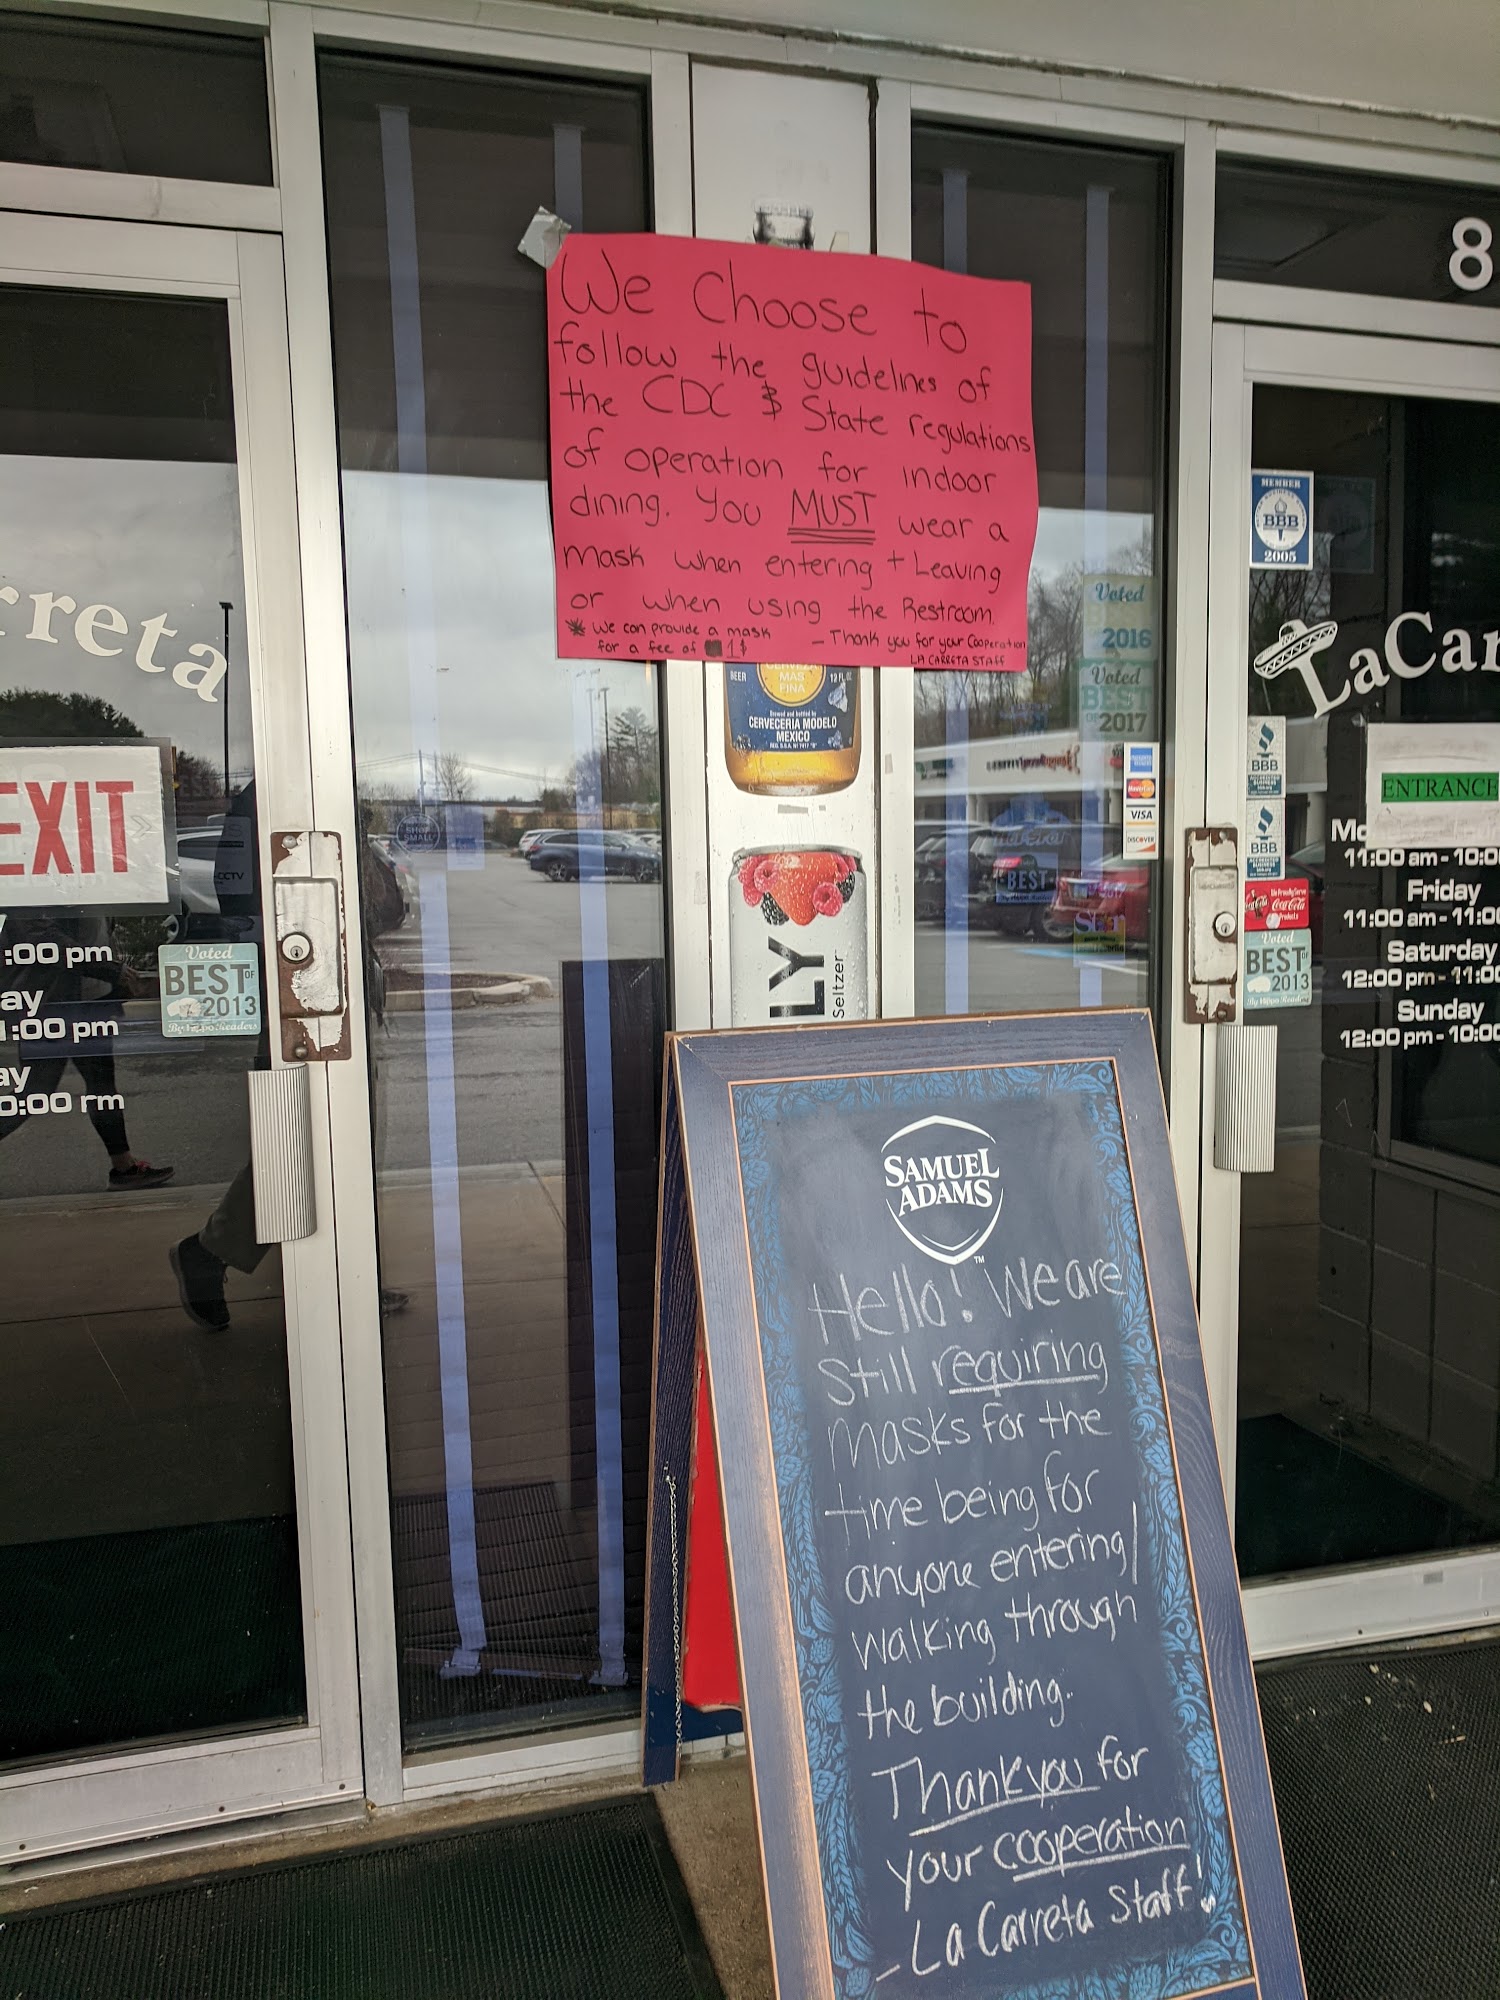 We Choose to
follow the guidelines of
the CDC & State regulations
of operation for indoor
dining. You MUST wear a
mask when entering + Leaving
or when using the Restroom.
* We can provide a mask
for a fee of 1$
- Thank you for your Cooperation
LA CARRETA STAFF
BEER
CERVEZA
MAS
FINA
12 FL. OZ
Brewed and bottled by
CERVECERIA MODELO
MEXICO
LY
Seltzer
SAMUEL
ADAMS
TM
Hello! We are
Still requiring
Masks for the
time being for
anyone entering/
walking through
the building.
Thank you for
your cooperation
- La Carreta Staff!
rreta
EXIT
:00 pm
ay
1:00 pm
ay
0:00 pm
Voted
BEST OF
2013
By Hippo Readers
CCTV
SHOP
SMALL
Voted
2016
Voted
BEST
OF 2017
MasterCard
VISA
DISCOVER
BEST
8
MEMBER
BBB
2005
LaCar
BBB
BBB
We Proudly Serve
Coca-Cola
Products
Voted
BEST OF
2013
By Hippo Readers
ENTRANCE
Mo
11:00 am - 10:0
Friday
11:00 am - 11:0
Saturday
12:00 pm - 11:0
Sunday
12:00 pm - 10:0